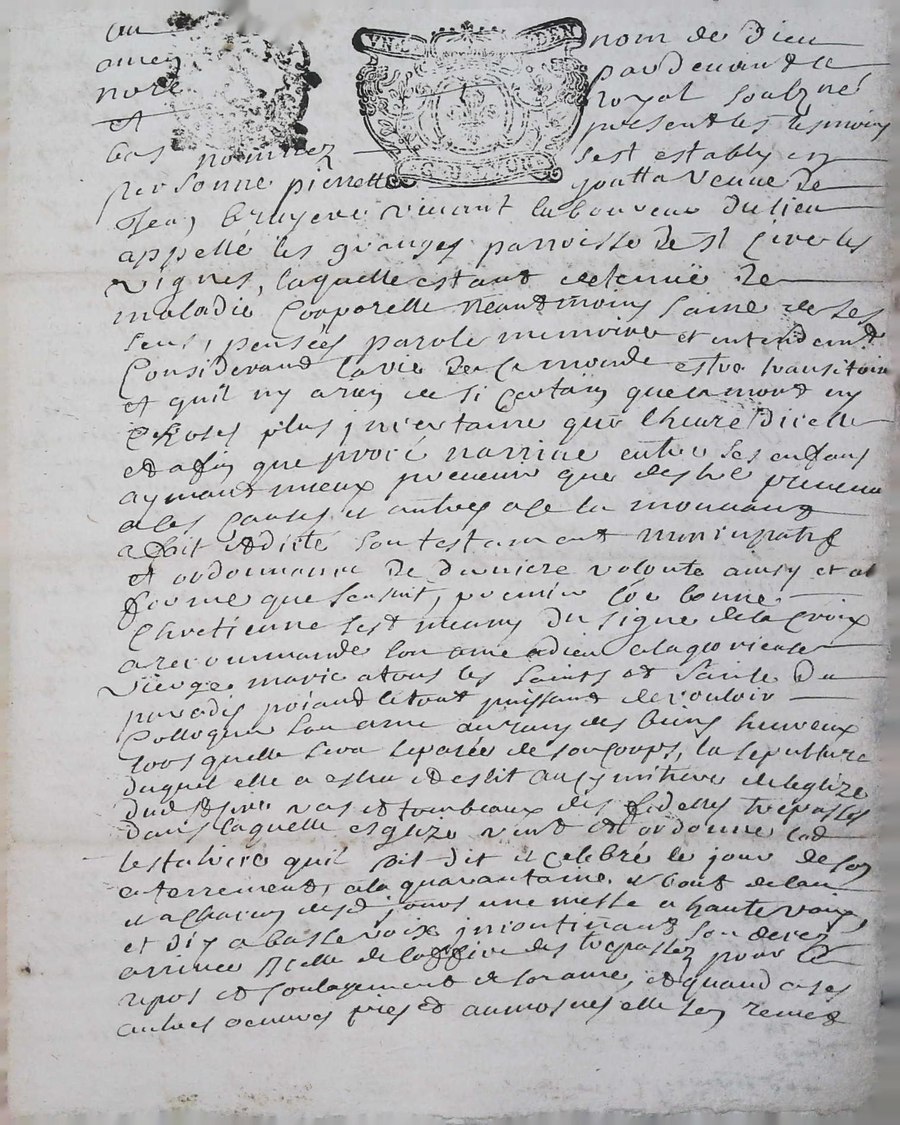 au nom de Dieu
amen pardevant le
nore royal soubzné
et present les tesmoins
bas nommez sest estably en
personne pierrette goutta veuve de
Jean bruyere vivant laboureur du lieu
appellé les granges parroisse de st Cire les
vignes, laquelle estant detenuë de
maladie Corporelle neantmoins saine de ses
sens, pensées parole memoire et entendemt
Considerand la vie de Ce monde estre transitoire
et quil ny a rien de si Certain que la mort ny
choses plus incertaine que lheure dicelle
et afin que procé narrive entre ses enfans
aymant mieux prevenir que destre prevenue
a les Causes et autres a ce la mouvant
a fait et dicté son testament noncupatif
et ordonnance de derniere volonté ainsy et a
forme que sensuit, premier Coe bonne
Chretienne sest munys du signe de la Croix
a recommandé son ame a dieu a la glorieuse
vierge marie a tous les saints et sainte du
paradis priand le tout puissant de vouloir
Colloquer son ame au rang des biens heureux
lors quelle sera separée de son corps, la sepulture
duquel elle a eslu et eslit au cymitiere de leglize
dud st Cire vas et tombeaux des fidelles trepasses
dans laquelle esglize veut et ordonne lad
testatrice quil soit dit et celebré le jour de son
enterrement, a la quarantaine et bout de lan
et a chacun desd jours une messe a haute voix,
et dix a basse voix incontinant son decez
arrivé Icelle de loffice des trepassez pour le
repos et soulagement de son ame, et quand a ses
autres oeuvres pies et aumosnes elle sen remet